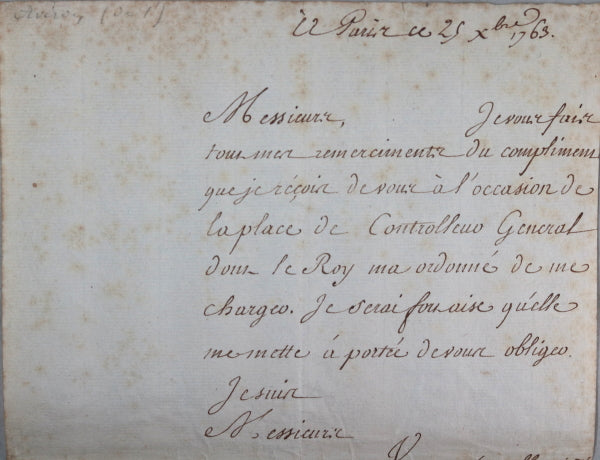 à Paris ce 25 Xbre 1763.
Messieurs, Je vous fais
tous mes remerciments du compliment
que je reçois de vous à l'occasion de
la place de Controlleur General
dont le Roy ma ordonné de me
charger. Je serai fort aise qu'elle
me mette à portée de vous obliger.
Je suis
Messieurs